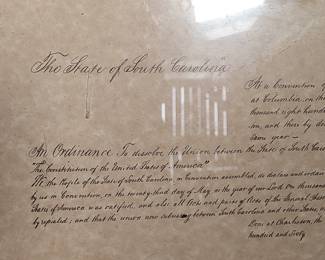 The State of South Carolina
At a Convention of
at Columbia on the
thousand eight hundred
and there by
same year —
An Ordinance To dissolve the Union between the State of South
"The Constitution of the United States of America"
We the People of the State of South Carolina, in Convention assembled, do declare and ordain
by us in Convention, on the twenty third day of May in the year of our Lord One thousand
States of America was ratified, and also, all Acts and parts of Acts of the General
by repealed; and that the union now subsisting between South Carolina and other States,
Done at Charleston, the
hundred and Sixty